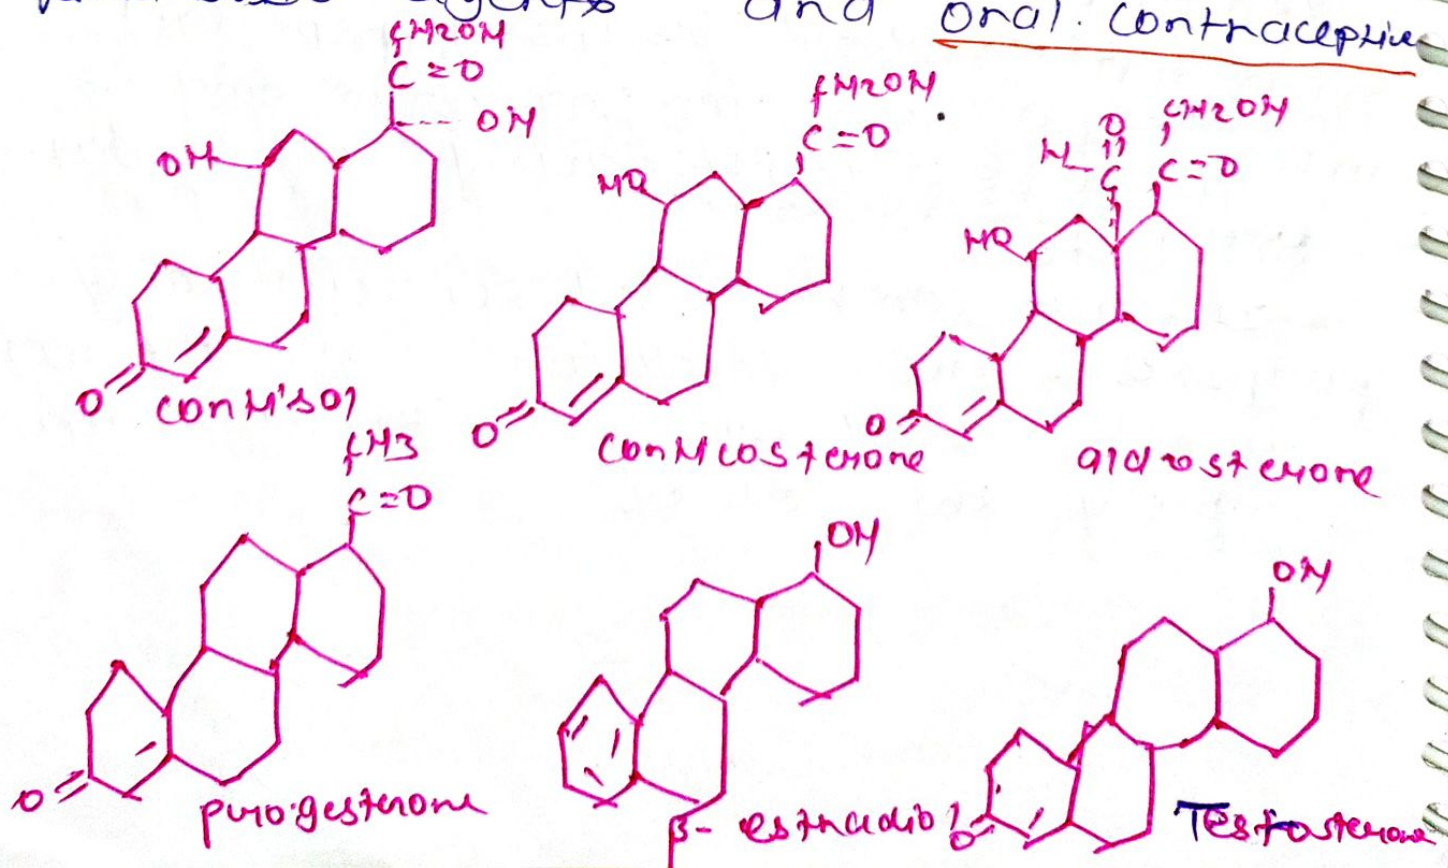 agents and oral. contraceptive
CH2OH
C=O
OH
OH
O
cortisol
CH2OH
C=O
HO
O
corticosterone
CH2OH
O
H
C
C=O
HO
O
aldosterone
CH3
C=O
O
progesterone
OH
β- estradiol
OH
O
Testosterone